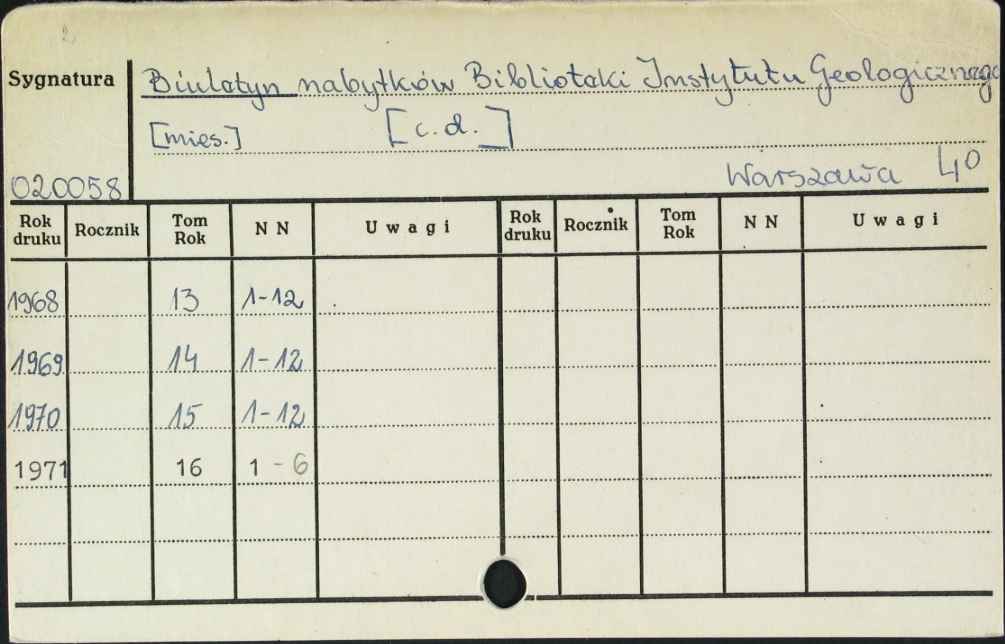 2
Sygnatura
Biuletyn nabytków Biblioteki Instytutu Geologicznego
[mies.] [c.d.]
020058 Warszawa 4⁰
Rok druku Rocznik Tom Rok NN Uwagi Rok druku Rocznik Tom Rok NN Uwagi
1968 13 1-12
1969 14 1-12
1970 15 1-12
1971 16 1-6